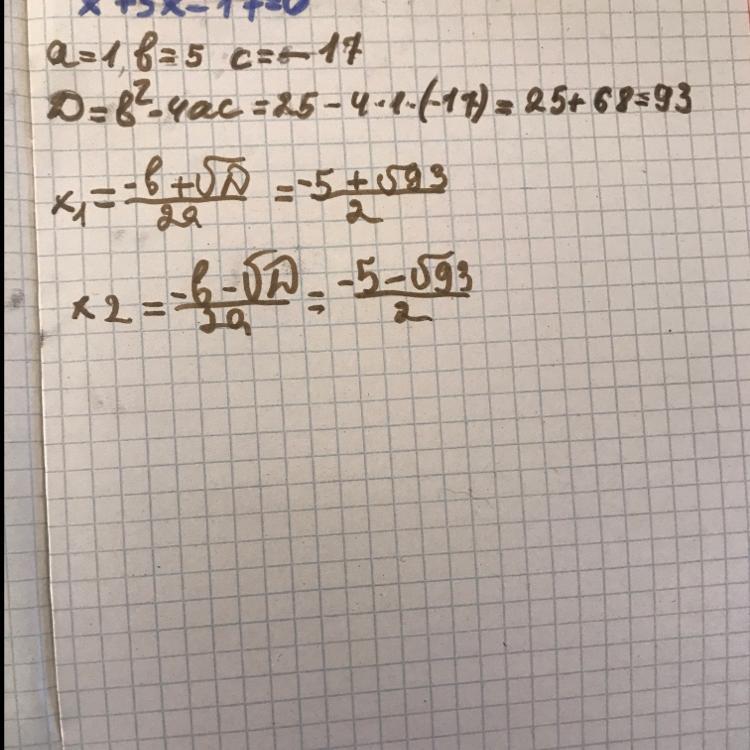 x + 5x - 17 = 0
a = 1, b = 5 c = - 17
D = b² - 4ac = 25 - 4 · 1 · (-17) = 25 + 68 = 93
x₁ = (-b + √D)/2a = (-5 + √93)/2
x2 = (-b - √D)/2a = (-5 - √93)/2